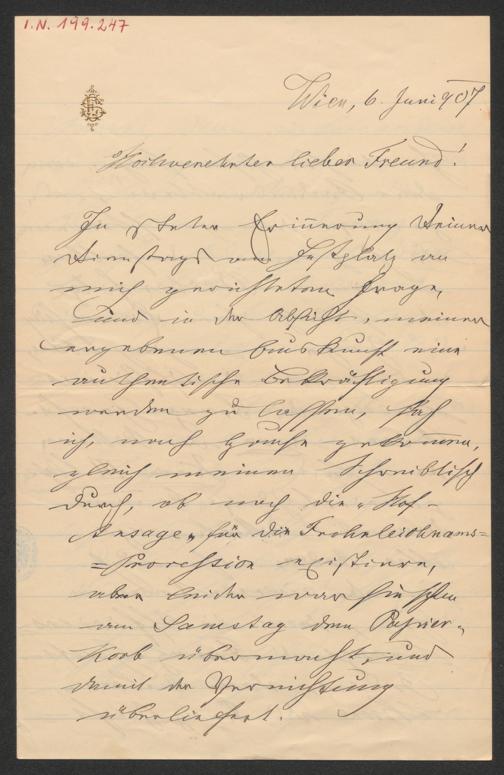 I.N. 199.247
Wien, 6. Juni 907.
Hochverehrter lieber Freund!
In steter Erinnerung Deiner
Dienstags am Festplatz an
mich gerichteten Frage,
und in der Absicht, meiner
ergebenen Auskunft eine
authentische Bekräftigung
werden zu lassen, sah
ich, nach Hause gekommen,
gleich meinen Schreibtisch
durch, ob noch die „Hof-
Ansage" für die Frohnleichnams=
=Procession existiere,
aber leider war sie schon
am Samstag dem Papier-
Korb übermacht, und
damit der Vernichtung
überliefert.